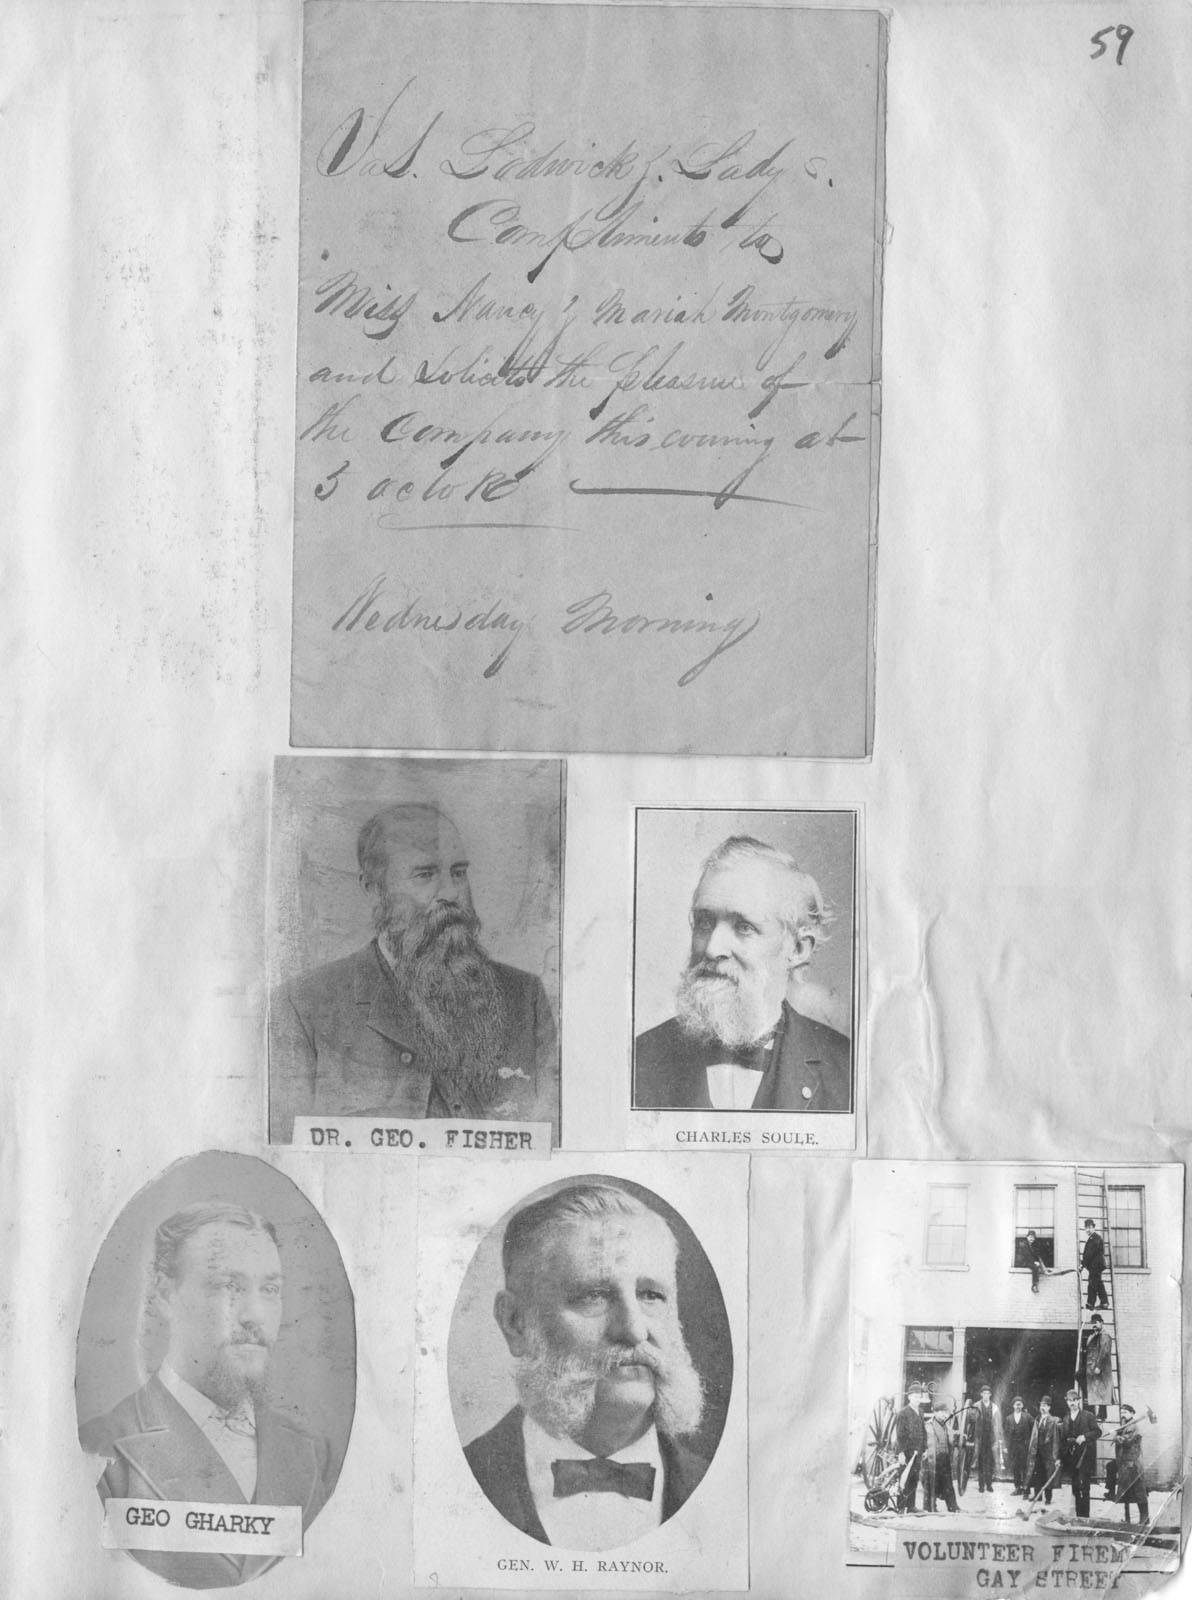 59
Jas. Lodwick & Lady s.
Compliments to
Miss Nancy & Mariah Montgomery
and Solicits the pleasure of
the Company this evening at
5 oclok
Wednesday Morning
DR. GEO. FISHER
CHARLES SOULE.
GEO GHARKY
GEN. W. H. RAYNOR.
VOLUNTEER FIREM
GAY STREET